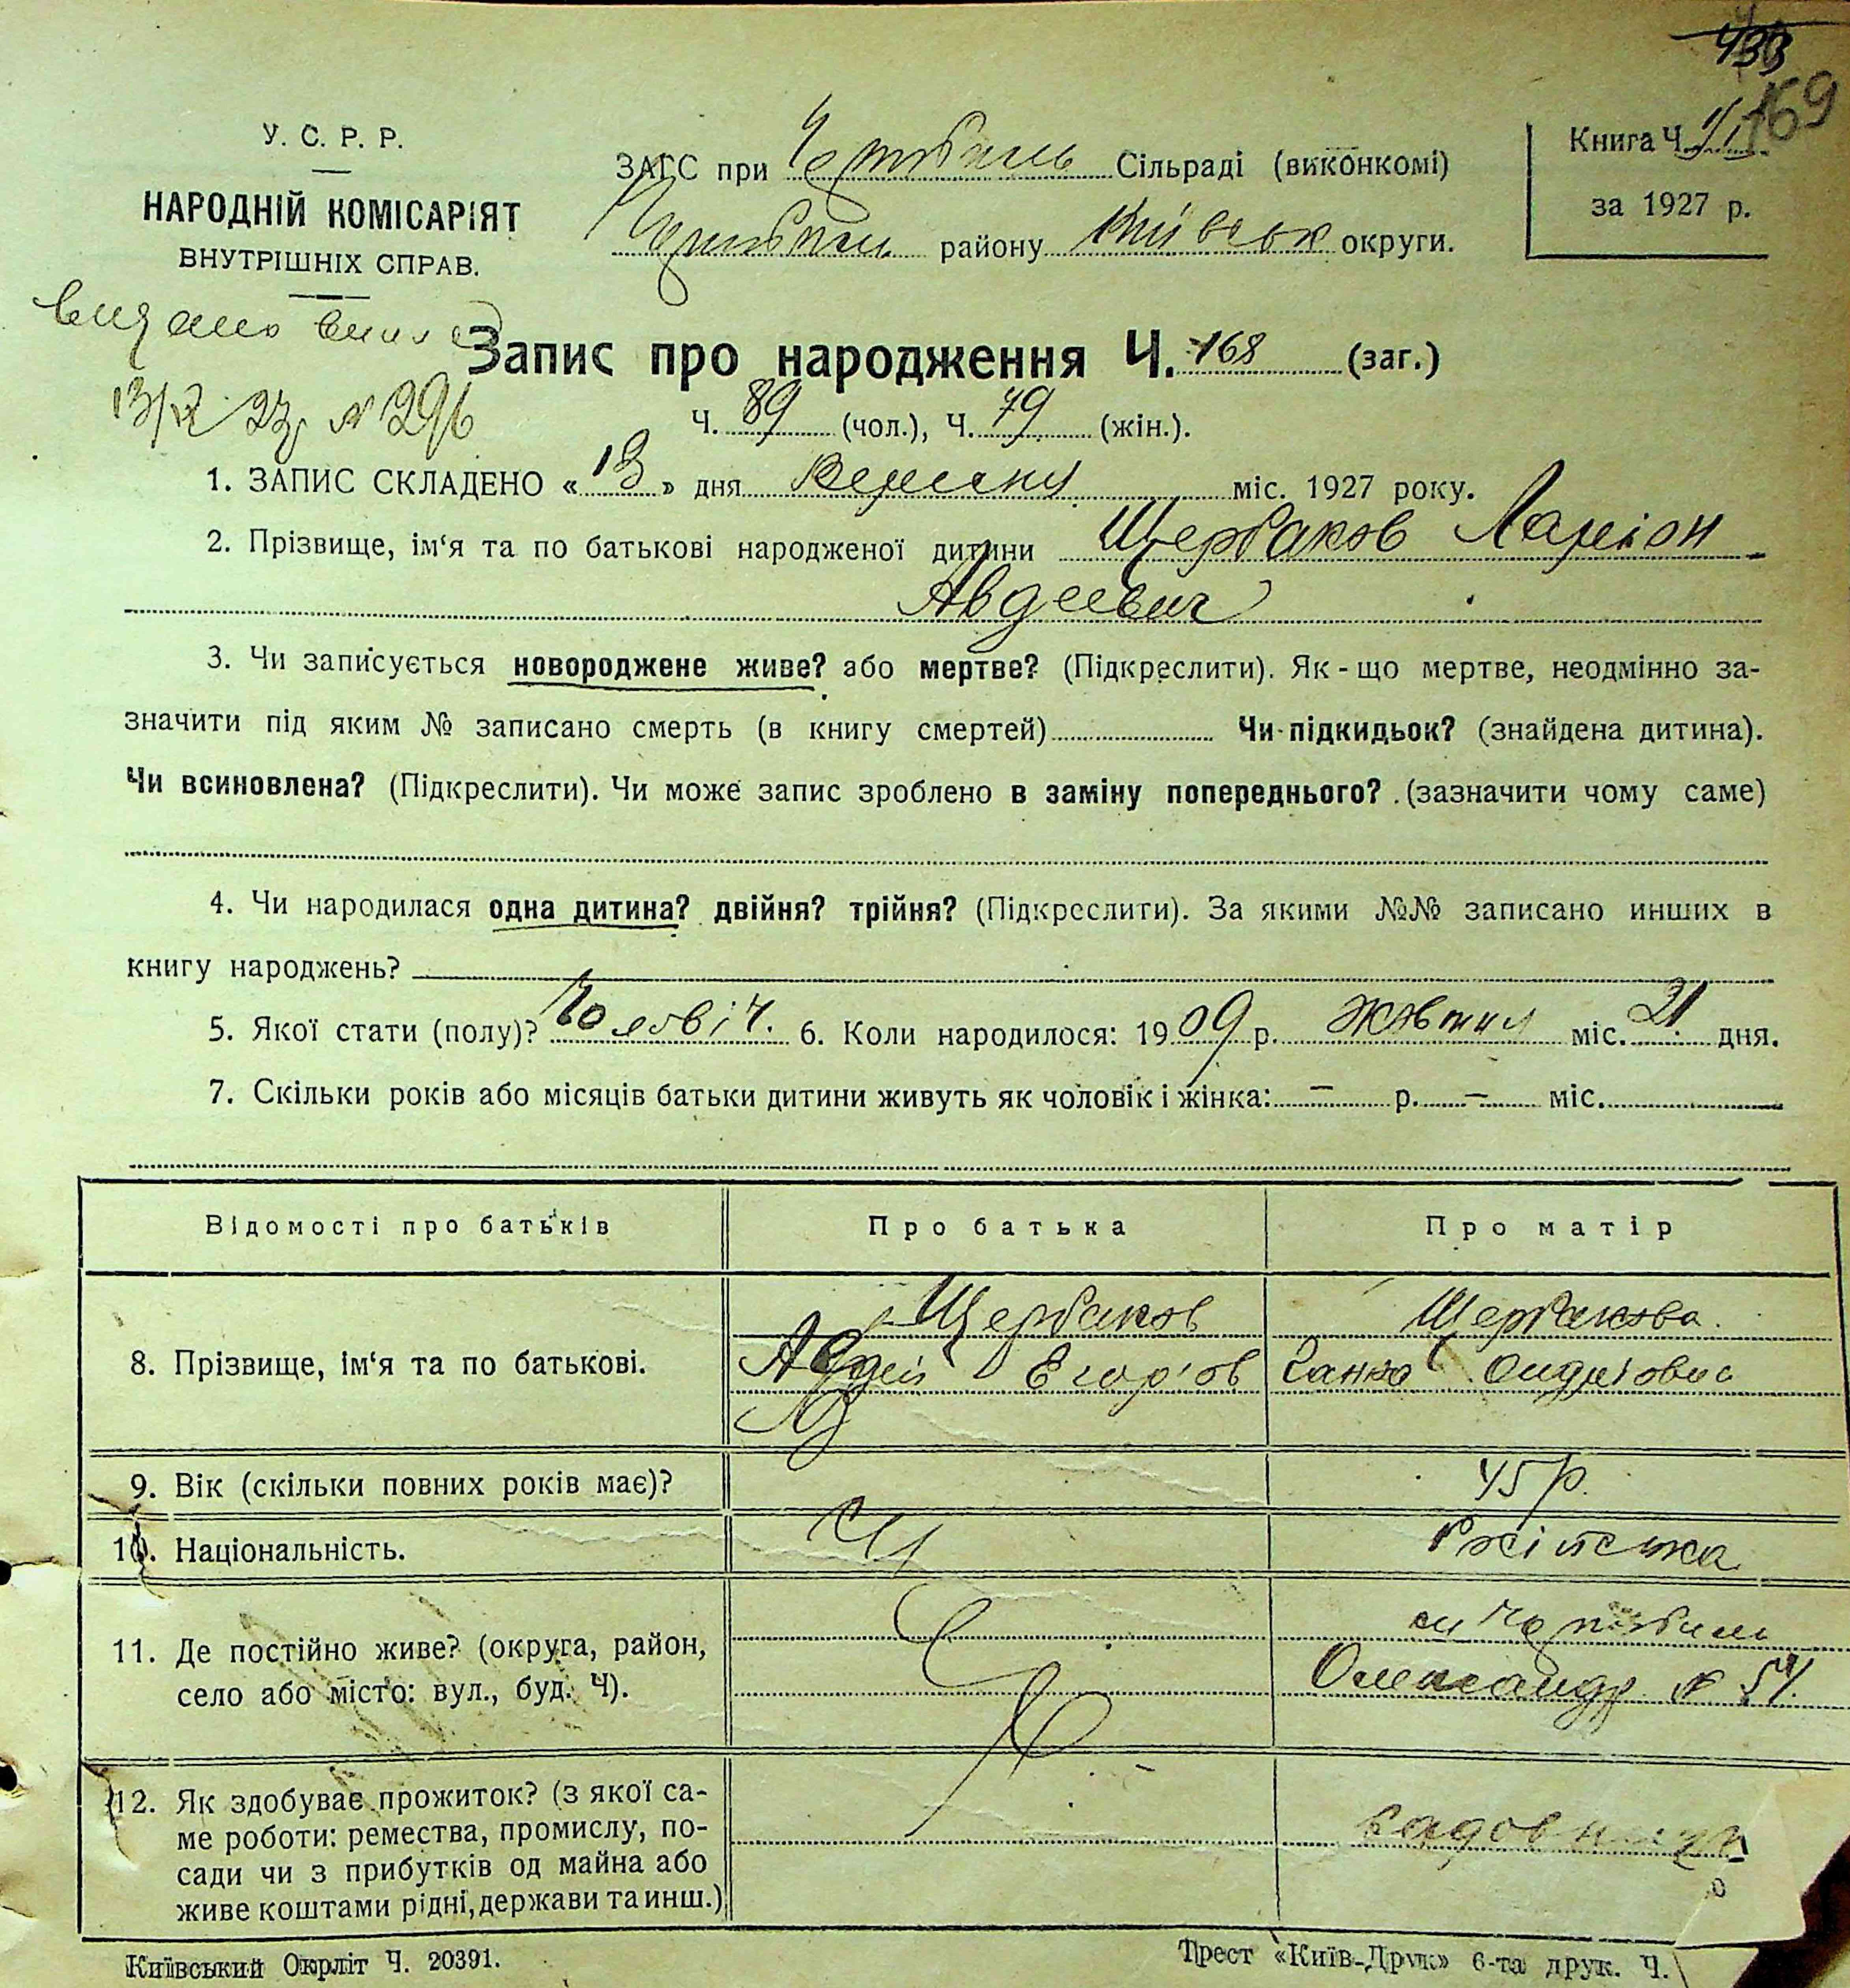 433
169
У. С. Р. Р.
НАРОДНІЙ КОМІСАРІЯТ
ВНУТРІШНІХ СПРАВ.
ЗАГС при Чорнобиль Сільраді (виконкомі)
Чорнобили району Київськ округи.
Книга Ч.
за 1927 р.
видано
Запис про народження Ч. 168 (заг.)
27 № 296
Ч. 89 (чол.), Ч. 79 (жін.).
1. ЗАПИС СКЛАДЕНО « 13 » дня Вересня міс. 1927 року.
2. Прізвище, ім‘я та по батькові народженої дитини Щербаков Ларіон
Авдеевич
3. Чи записується новороджене живе? або мертве? (Підкреслити). Як-що мертве, неодмінно за-
значити під яким № записано смерть (в книгу смертей) Чи підкидьок? (знайдена дитина).
Чи всиновлена? (Підкреслити). Чи може запис зроблено в заміну попереднього? (зазначити чому саме)
4. Чи народилася одна дитина? двійня? трійня? (Підкреслити). За якими №№ записано инших в
книгу народжень?
5. Якої стати (полу)? Чоловіч. 6. Коли народилося: 1909 р. жовтня міс. 21 дня.
7. Скільки років або місяців батьки дитини живуть як чоловік і жінка: – р. – міс.
Відомості про батьків Про батька Про матір
8. Прізвище, ім‘я та по батькові. Щербаков Авдей Егор'ов Щербакова Ганна Андріовна
9. Вік (скільки повних років має)? 45 р.
10. Національність. Російська
11. Де постійно живе? (округа, район,
село або місто: вул., буд. Ч). м Чорнобиль Олександр № 54.
12. Як здобуває прожиток? (з якої са-
ме роботи: ремества, промислу, по-
сади чи з прибутків од майна або
живе коштами рідні, держави та инш.)
Київський Окрліт Ч. 20391.
Трест «Київ-Друк» 6-та друк. Ч.